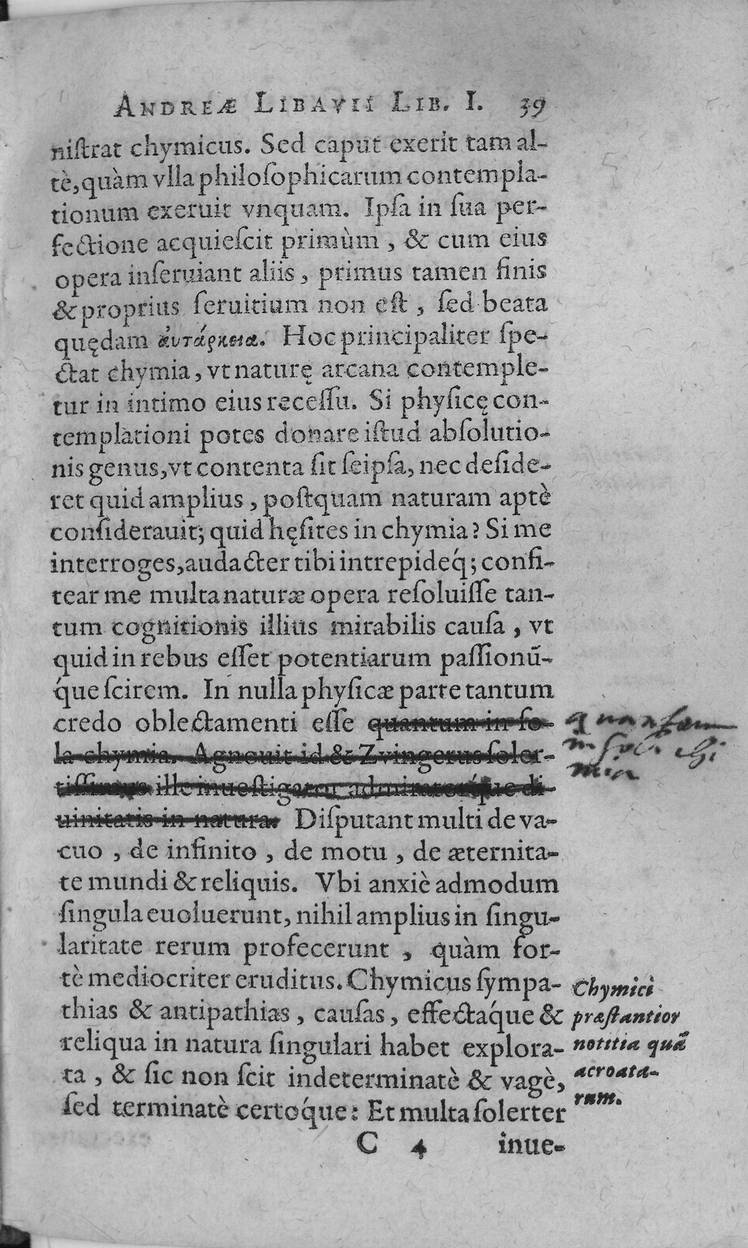 ANDREÆ LIBAVII LIB. I. 39
niſtrat chymicus. Sed caput exerit tam al-
tè, quàm vlla philoſophicarum contempla-
tionum exeruit vnquam. Ipſa in ſua per-
fectione acquieſcit primùm, & cum eius
opera inſeruiant aliis, primus tamen finis
& proprius ſeruitium non eſt, ſed beata
quędam ἀυτάρκεια. Hoc principaliter ſpe-
ctat chymia, vt naturę arcana contemple-
tur in intimo eius receſſu. Si phyſicę con-
templationi potes donare iſtud abſolutio-
nis genus, vt contenta ſit ſeipſa, nec deſide-
ret quid amplius, poſtquam naturam aptè
conſiderauit; quid hęſites in chymia? Si me
interroges, audacter tibi intrepideq́; confi-
tear me multa naturæ opera reſoluiſſe tan-
tum cognitionis illius mirabilis cauſa, vt
quid in rebus eſſet potentiarum paſſionū-
q́ue ſcirem. In nulla phyſicæ parte tantum
credo oblectamenti eſſe quantum in ſo-
la chymia. Agnouit id & Zvingerus ſoler-
tiſſimus ille inueſtigator admiratorq́ue di-
uinitatis in natura. Diſputant multi de va-
cuo, de infinito, de motu, de æternita-
te mundi & reliquis. Vbi anxiè admodum
ſingula euoluerunt, nihil amplius in ſingu-
laritate rerum profecerunt, quàm for-
tè mediocriter eruditus. Chymicus ſympa-
thias & antipathias, cauſas, effectaq́ue &
reliqua in natura ſingulari habet explora-
ta, & ſic non ſcit indeterminatè & vagè,
ſed terminatè certoq́ue: Et multa ſolerter
C 4 inue-
quantum
in sola chi
mia
Chymici
præſtantior
notitia quā
acroata-
rum.